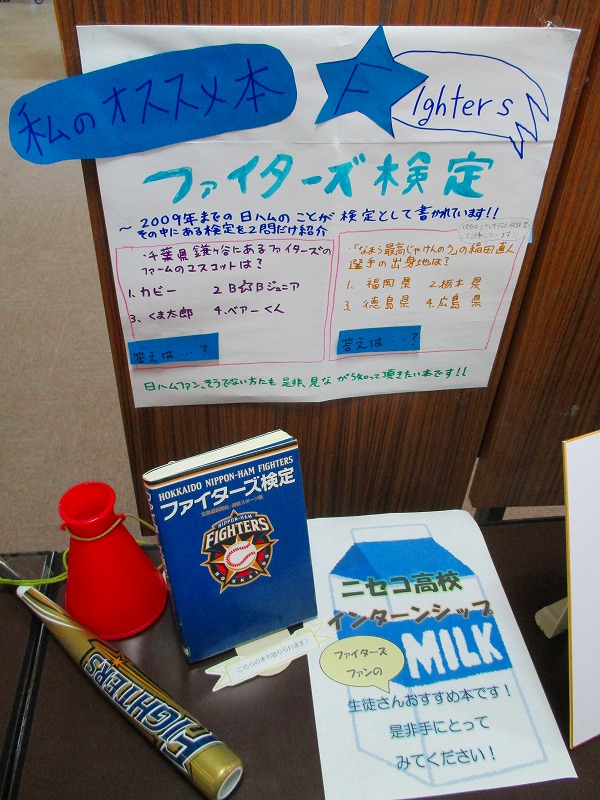 私のオススメ本
Fighters
ファイターズ検定
~2009年までの日ハムのことが検定として書かれています!!
その中にある検定を2問だけ紹介
・千葉県鎌ヶ谷にあるファイターズの
ファームのマスコットは?
1、カビー 2、B☆Bジュニア
3、くま太郎 4、ベアーくん
答えは・・・?
・「なまら最高じゃけんのう」の稲田直人
選手の出身地は?
1、福岡県 2、栃木県
3、徳島県 4、広島県
答えは・・・?
日ハムファン、そうでない方たも是非、見ながら知って頂きたい本です!!
HOKKAIDO NIPPON-HAM FIGHTERS
ファイターズ検定
NIPPON-HAM
FIGHTERS
HOKKAIDO
こちらの本も借りられます!
FIGHTERS
ニセコ高校
インターンシップ
ファイターズ
ファンの
MILK
生徒さんおすすめ本です!
是非手にとって
みてください!